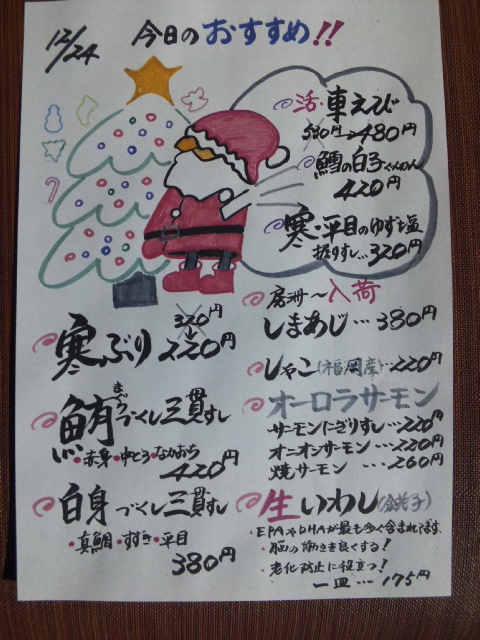 12/24
今日のおすすめ!!
活・車えび
580円→480円
鱈の白子ぐんかん
420円
寒・平目のゆず塩
握りすし…320円
房州〜入荷
しまあじ…380円
しゃこ(福岡産)…220円
オーロラサーモン
サーモンにぎりすし…220円
オニオンサーモン…220円
焼サーモン…260円
生いわし(銚子)
・EPAやDHAが最も多く含まれてます、
・脳の働きを良くする!
・老化防止に役立つ!
一皿…175円
320円
寒ぶり220円
まぐろ
鮪づくし三貫すし
・赤身・中とろ・なかおち
420円
白身づくし三貫すし
・真鯛・すずき・平目
380円